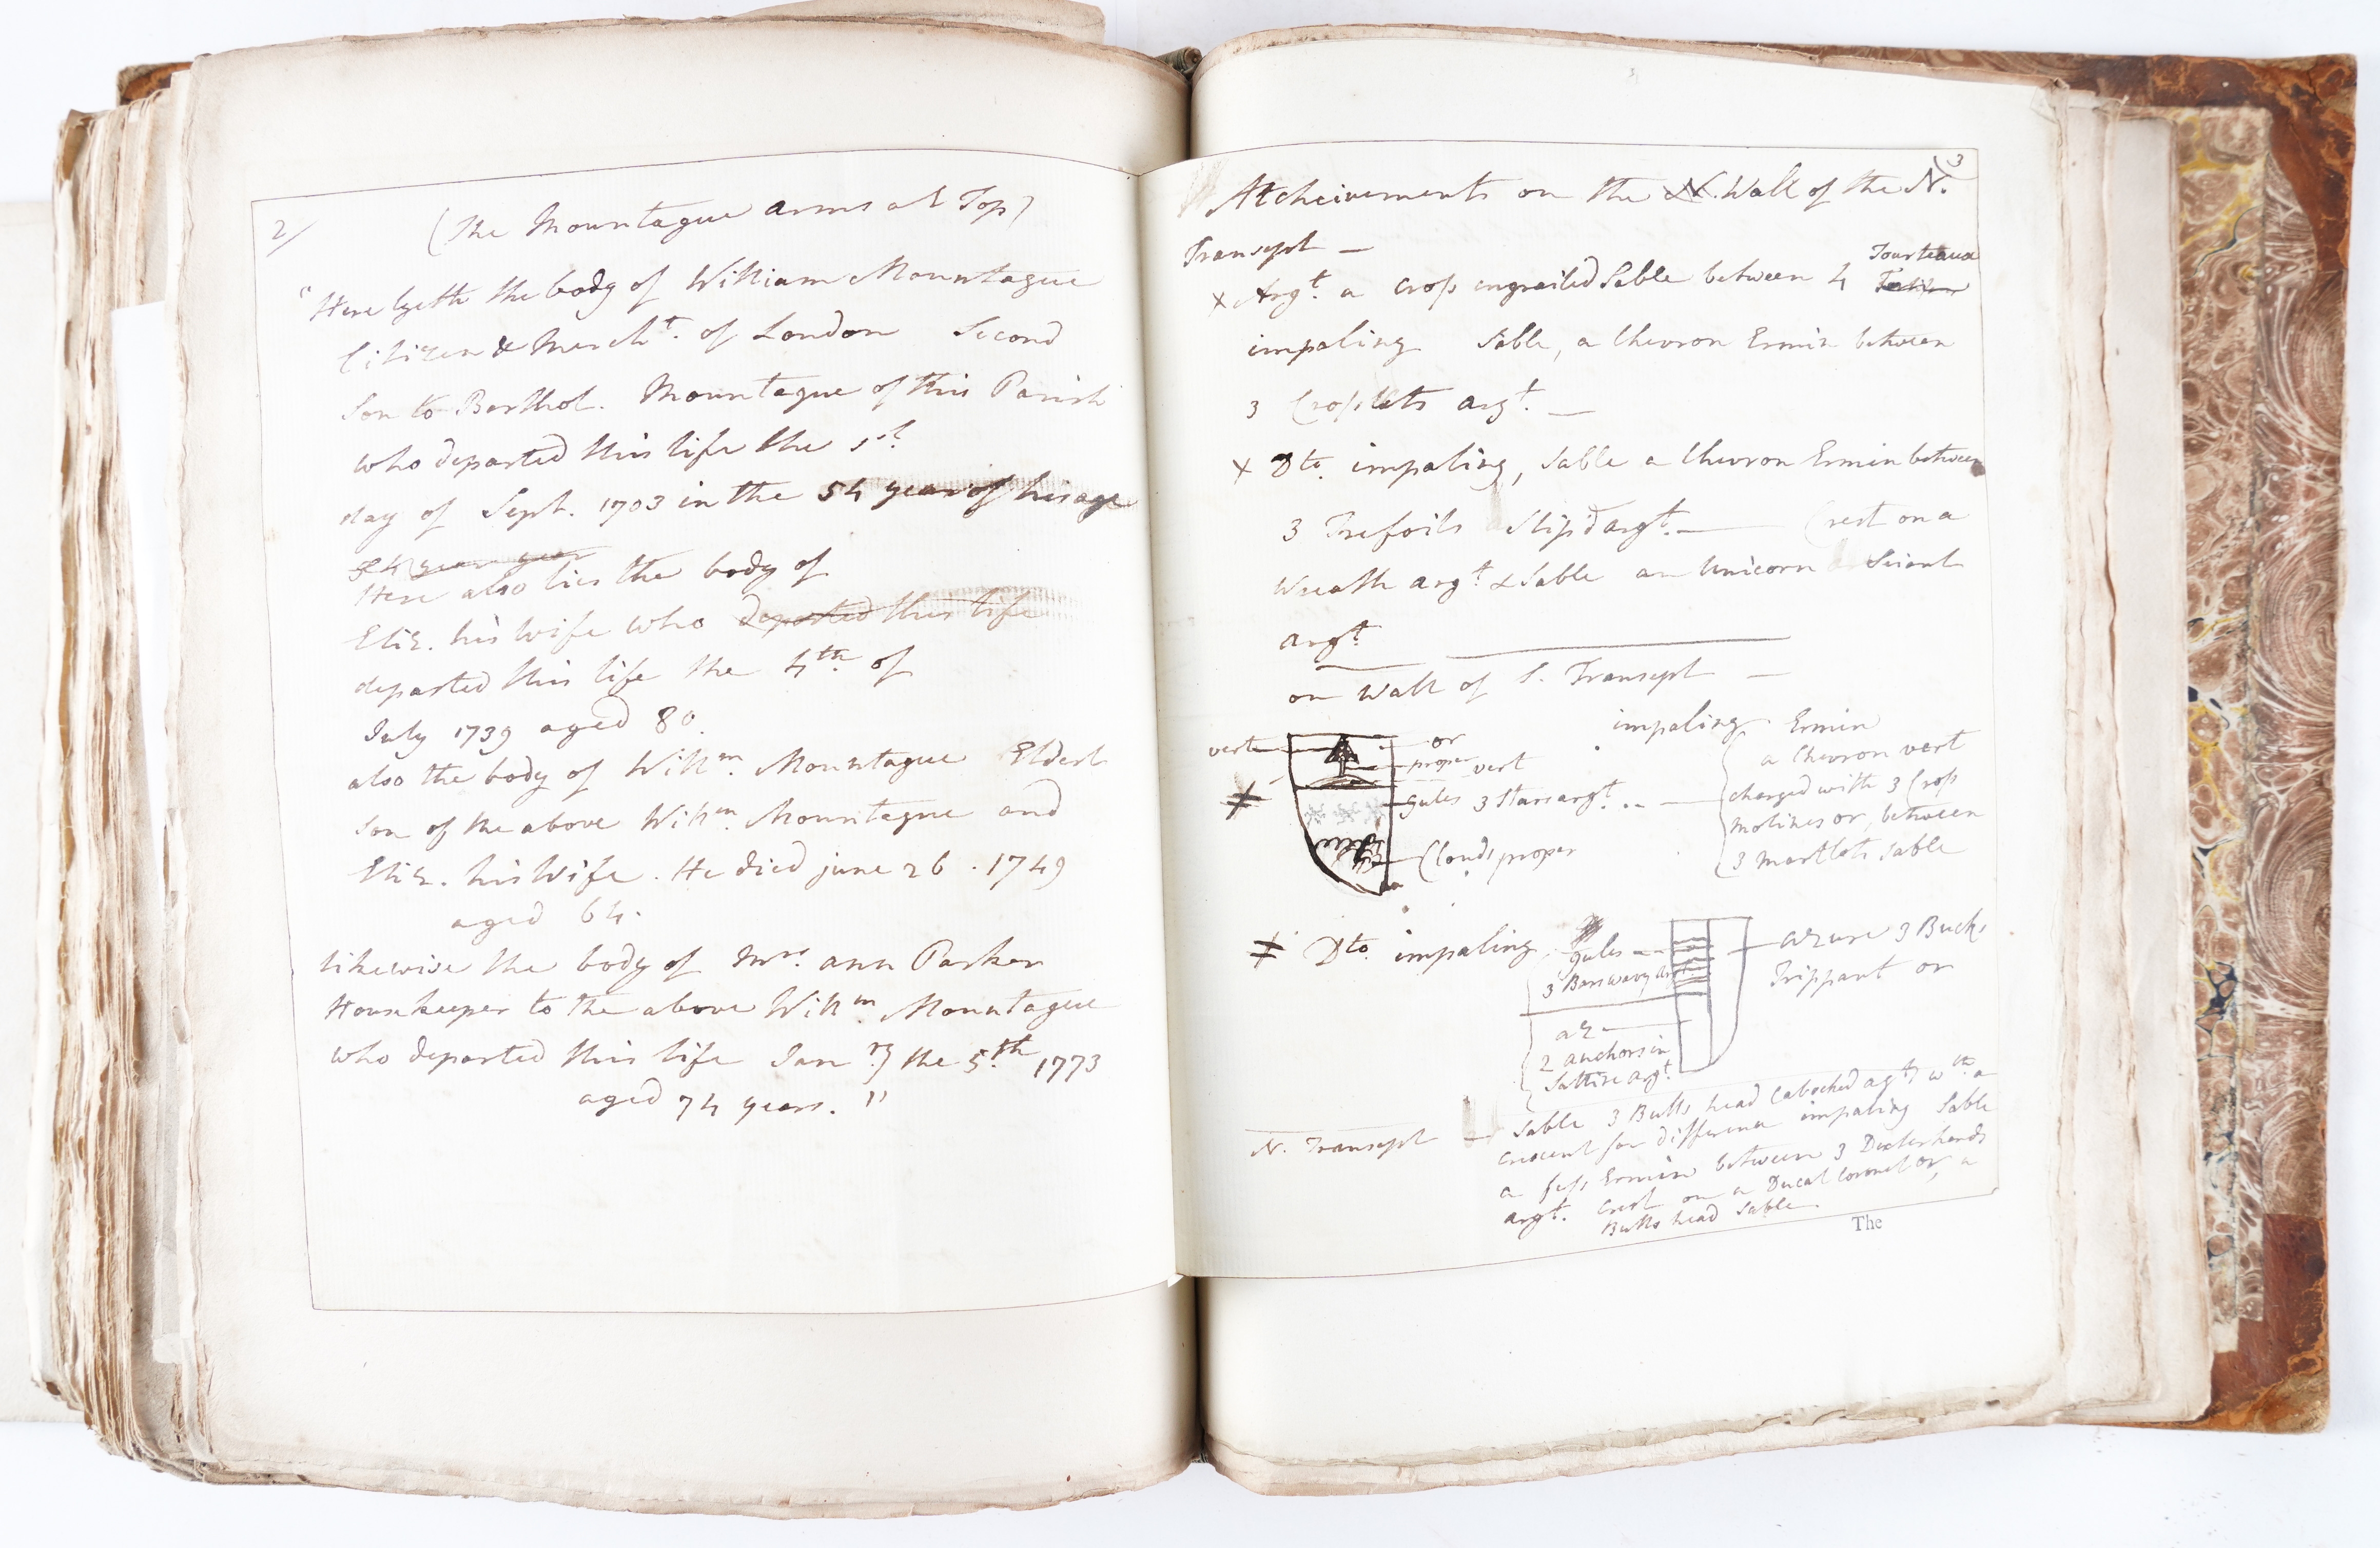 2/
(The Mountague arms at Top)
"Here lyeth the body of William Mountague
Citizen & Mercht. of London Second
Son to Barthol. Mountague of this Parish
who departed this life the 1st
day of Sept. 1703 in the 54 year of his age
54 year
Here also lies the body of
Eliz. his wife who departed this life
departed this life the 4th of
July 1739 aged 80.
also the body of Willm. Mountague Eldest
son of the above Willm. Mountague and
Eliz. his Wife. He died june 26. 1749
aged 64.
likewise the body of Mrs. ann Parker
Housekeeper to the above Willm. Mountague
who departed this life Janry the 5th. 1773
aged 74 years."
3
Atcheivements on the N. Wall of the N.
Transept —
Tourteaux
x Argt. a Cross engrailed Sable between 4
impaling Sable, a Chevron Ermin between
3 Crosslets argt. —
x Dto. impaling, Sable a Chevron Ermin between
3 Trefoils Slip'd argt. — Crest on a
Wreath argt. & Sable an Unicorn Seiant
argt.
on Wall of S. Transept —
impaling Ermin
vert or
proper vert
a Chevron vert
gules 3 Stars argt.
charged with 3 Cross
molines or, between
3 martlets Sable
Clouds proper
Dto. impaling gules
3 Bars wavy argt.
azure 3 Bucks
Trippant or
az
2 anchors in
Saltire argt.
N. Transept — Sable 3 Bulls head Cabocked agt. wth. a
crescent for difference impaling Sable
a fess Ermin between 3 Ducks heads
argt. Crest on a Ducal Coronet or, a
Bulls head Sable
The